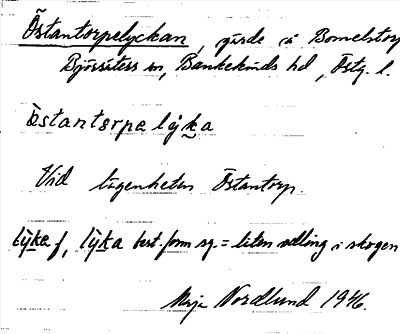 Östantorpelyckan, gärde i Bomelstorp
Bjärsäters sn, Bankekinds hd, Östg. l.
östantorpa lyka
Vid lägenheten Östantorp.
lyka f, lyka best. form sg. = liten odling i skogen
Maja Nordlund 1946.